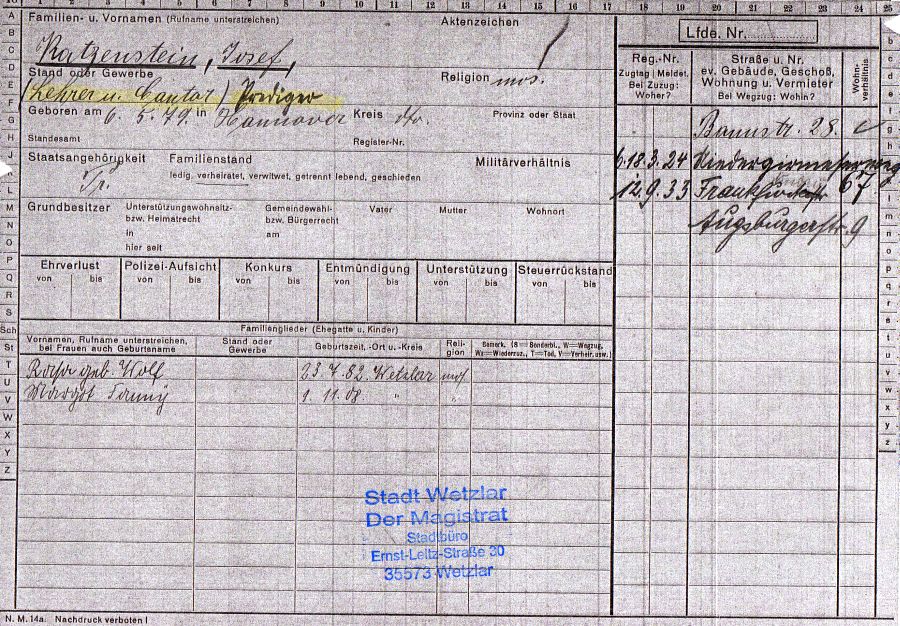 Familien- u. Vornamen (Rufname unterstreichen)
Aktenzeichen
Katzenstein, Josef,
Stand oder Gewerbe
Religion mos.
(Lehrer u. Cantor) Prediger
Geboren am 6. 5. 79. in Hannover Kreis Provinz oder Staat
Standesamt Register-Nr.
Staatsangehörigkeit Familienstand Militärverhältnis
Pr. ledig, verheiratet, verwitwet, getrennt lebend, geschieden
Grundbesitzer Unterstützungswohnsitz- bzw. Heimatrecht Gemeindewahl- bzw. Bürgerrecht Vater Mutter Wohnort
in am
hier seit
Ehrverlust Polizei-Aufsicht Konkurs Entmündigung Unterstützung Steuerrückstand
von bis von bis von bis von bis von bis von bis
Familienglieder (Ehegatte u. Kinder)
Vornamen, Rufname unterstreichen, bei Frauen auch Geburtsname
Stand oder Gewerbe
Geburtszeit, -Ort u. -Kreis
Reli- gion
Bemerk. (S=Sonderbl., W=Wegzug, Wz=Wiederzuz., T=Tod, V=Verheir. usw.)
Rosa geb. Wolf 23. 7. 82. Wetzlar mos
Margot Fanny 1. 11. 08 " "
Lfde. Nr.
Reg.-Nr.
Zugtag | Meldet.
Bei Zuzug:
Woher?
Straße u. Nr.
ev. Gebäude, Geschoß,
Wohnung u. Vermieter
Bei Wegzug: Wohin?
Wohn- verhältnis
Baunstr. 28.
18. 3. 24 Niedergirmeserweg
12. 9. 33 67
Augsburgerstr. 9
Stadt Wetzlar
Der Magistrat
Stadtbüro
Ernst-Leitz-Straße 30
35573 Wetzlar
N. M. 14a. Nachdruck verboten!